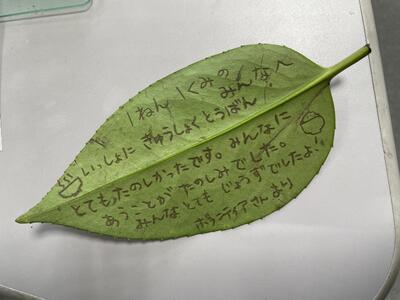 1ねん1くみの
みんなへ
いっしょに きゅうしょくとうばん
とてもたのしかったです。みんなに
あうことがたのしみでした。
みんなとても じょうずでしたよ!
ボランティアさんより